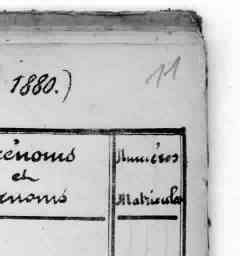 11
1880.)
rénoms
et
rnoms
Numéros
Matricules